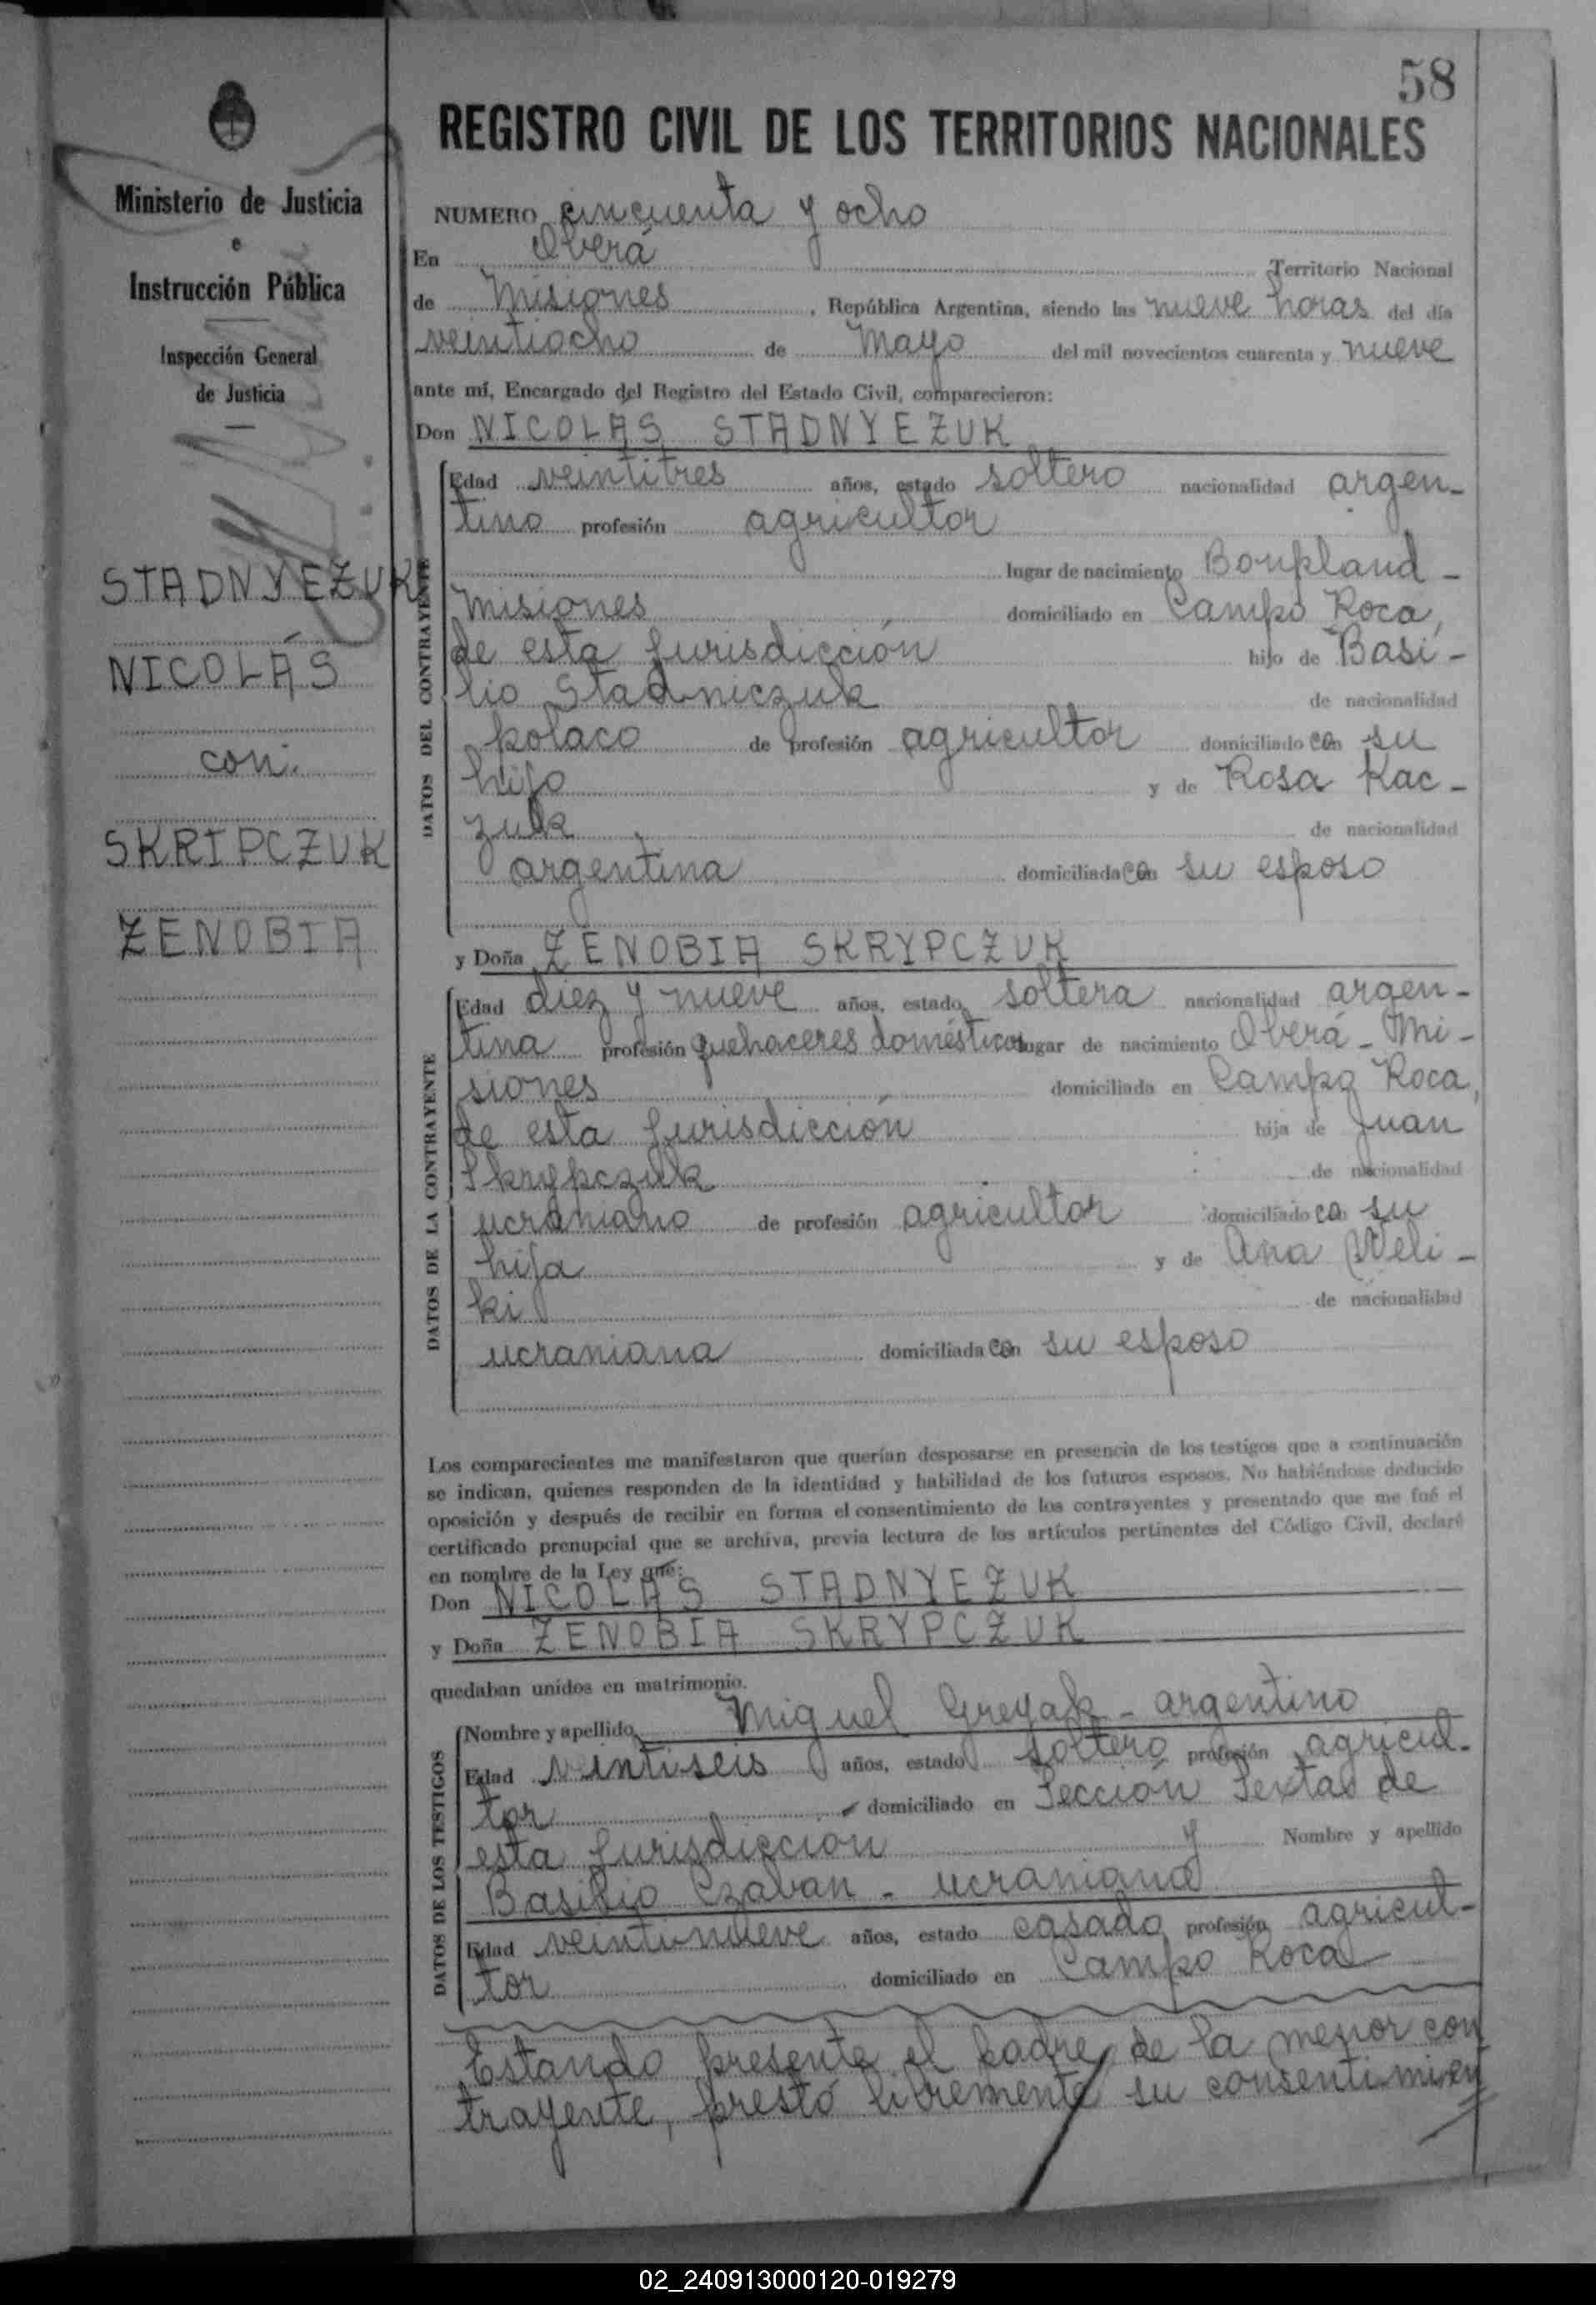 58
REGISTRO CIVIL DE LOS TERRITORIOS NACIONALES
Ministerio de Justicia
e
Instrucción Pública
Inspección General
de Justicia
STADNYEZUK
NICOLÁS
con
SKRIPCZUK
ZENOBIA
NUMERO cincuenta y ocho
En Oberá Territorio Nacional
de Misiones, República Argentina, siendo las nueve horas del día
veintiocho de Mayo del mil novecientos cuarenta y nueve
ante mí, Encargado del Registro del Estado Civil, comparecieron:
Don NICOLÁS STADNYEZUK
DATOS DEL CONTRAYENTE
Edad veintitres años, estado soltero nacionalidad argen-
tino profesión agricultor
lugar de nacimiento Bonpland -
Misiones domiciliado en Campo Roca,
de esta jurisdicción hijo de Basi-
lio Stadniczuk de nacionalidad
polaco de profesión agricultor domiciliado con su
hijo y de Rosa Kac-
zuk de nacionalidad
argentina domiciliada con su esposo
y Doña ZENOBIA SKRYPCZUK
DATOS DE LA CONTRAYENTE
Edad diez y nueve años, estado soltera nacionalidad argen-
tina profesión quehaceres domésticos lugar de nacimiento Oberá - Mi-
siones domiciliada en Campo Roca,
de esta jurisdicción hija de Juan
Skrypczuk de nacionalidad
ucraniano de profesión agricultor domiciliado con su
hija y de Ana Weli-
ki de nacionalidad
ucraniana domiciliada con su esposo
Los comparecientes me manifestaron que querían desposarse en presencia de los testigos que a continuación
se indican, quienes responden de la identidad y habilidad de los futuros esposos. No habiéndose deducido
oposición y después de recibir en forma el consentimiento de los contrayentes y presentado que me fué el
certificado prenupcial que se archiva, previa lectura de los artículos pertinentes del Código Civil, declaré
en nombre de la Ley que:
Don NICOLAS STADNYEZUK
y Doña ZENOBIA SKRYPCZUK
quedaban unidos en matrimonio.
DATOS DE LOS TESTIGOS
Nombre y apellido Miguel Greyak - argentino
Edad veintiseis años, estado soltero profesión agricul-
tor domiciliado en Sección Sexta de
esta jurisdicción y Nombre y apellido
Basilio Czaban - ucraniano
Edad veintinueve años, estado casado profesión agricul-
tor domiciliado en Campo Roca
Estando presente el padre de la menor con
trayente, prestó libremente su consentimien
02_240913000120-019279